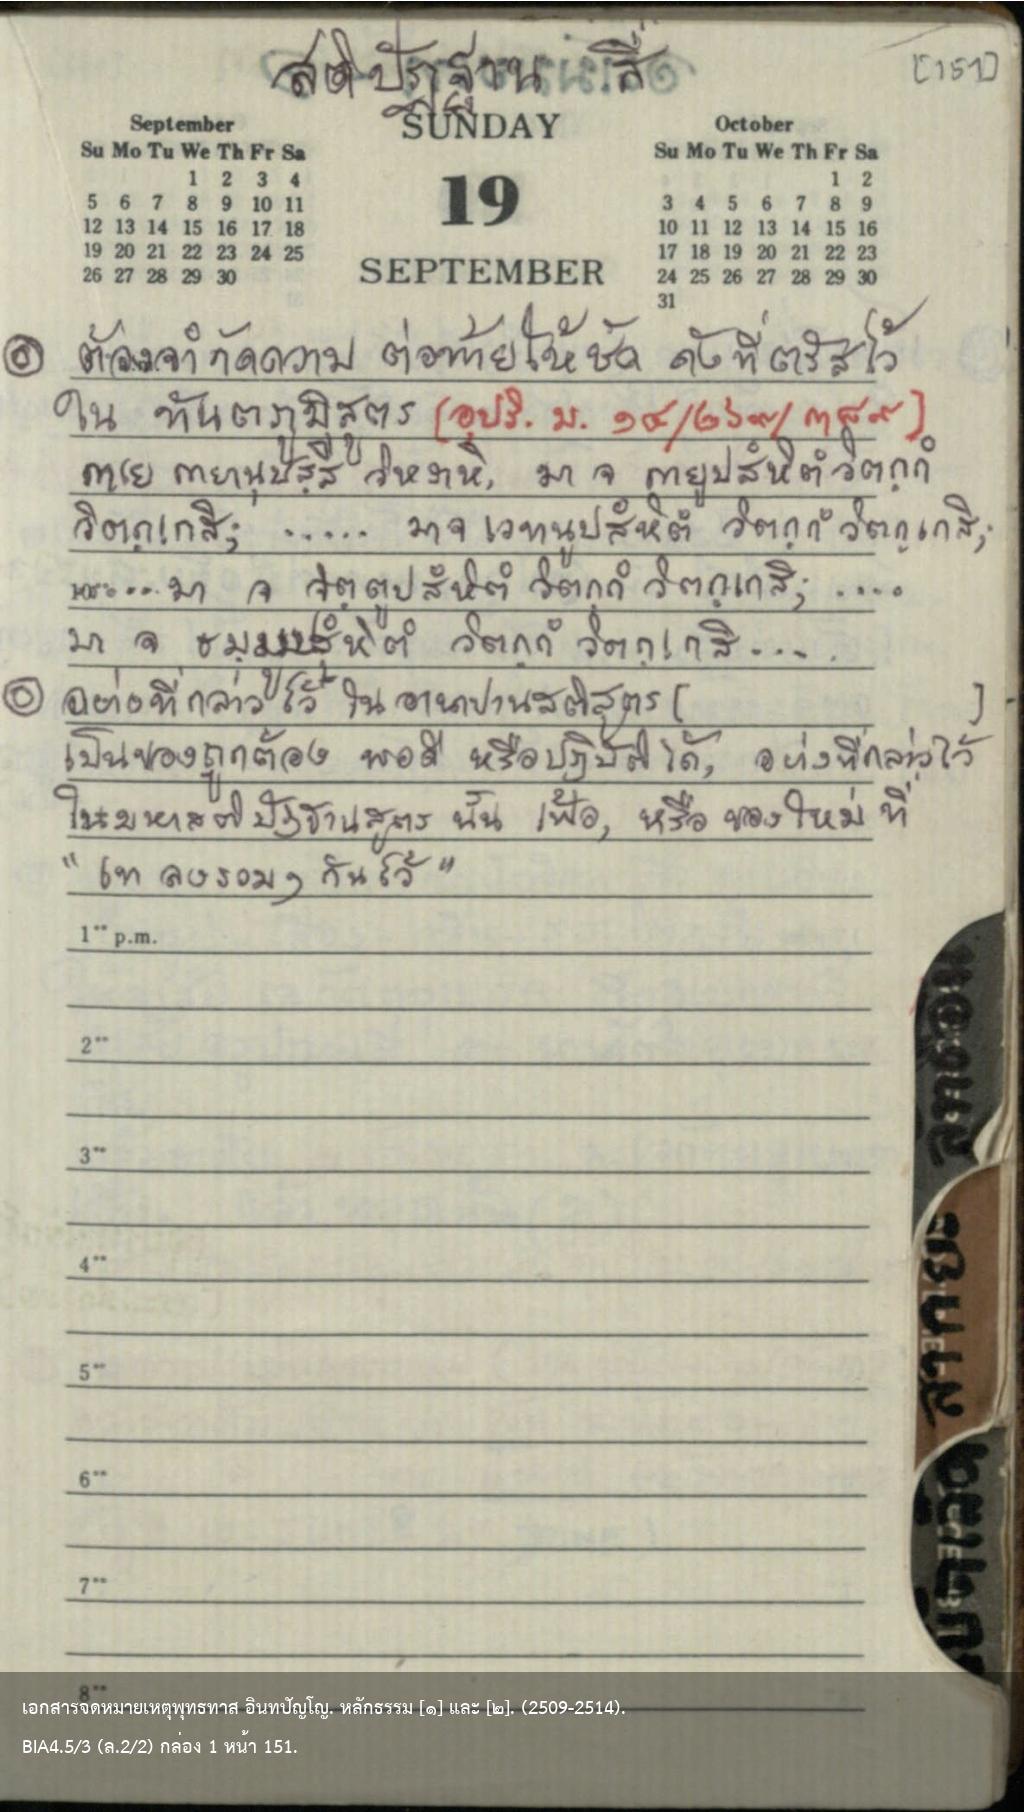 สติปัฏฐาน สี่
[151]
September
Su Mo Tu We Th Fr Sa
1 2 3 4
5 6 7 8 9 10 11
12 13 14 15 16 17 18
19 20 21 22 23 24 25
26 27 28 29 30
SUNDAY
19
SEPTEMBER
October
Su Mo Tu We Th Fr Sa
1 2
3 4 5 6 7 8 9
10 11 12 13 14 15 16
17 18 19 20 21 22 23
24 25 26 27 28 29 30
31
ต้องจำกัดความ ต่อท้ายให้ชัด ดังที่ตรัสไว้
ใน ทันตภูมิสูตร [อุปริ. ม. ๑๔/๒๖๙/๓๙๙]
กาเย กายานุปสฺสี วิหราหิ, มา จ กายูปสํหิตํ วิตกฺกํ
วิตกฺเกสิ; ...... มา จ เวทนูปสํหิตํ วิตกฺกํ วิตกฺเกสิ;
... มา จ จิตฺตูปสํหิตํ วิตกฺกํ วิตกฺเกสิ; ....
มา จ ธมฺมูปสํหิตํ วิตกฺกํ วิตกฺเกสิ....
อย่างที่กล่าวไว้ ในอานาปานสติสูตร [ ]
เป็นของถูกต้อง พอดี หรือปฏิบัติได้, อย่างที่กล่าวไว้
ในมหาสติปัฏฐานสูตร นั้น เฟ้อ, หรือ ของใหม่ ที่
" เท ลงรวมๆ กันไว้ "
1 p.m.
2
3
4
5
6
7
8
สากยะ
เอกสารจดหมายเหตุพุทธทาส อินทปัญโญ. หลักธรรม [๑] และ [๒]. (2509-2514).
BIA4.5/3 (ล.2/2) กล่อง 1 หน้า 151.